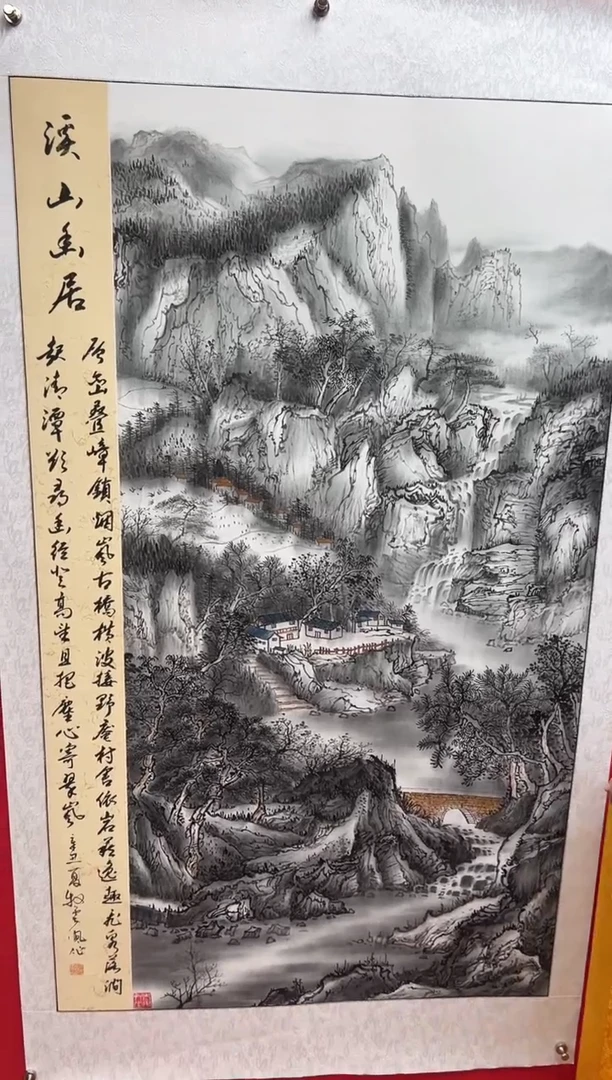 溪山幽居
层峦叠嶂锁烟岚古桥横波接野庵村舍依岩藏逸趣飞瀑落涧
起清潭欲寻幽径登高望且把尘心寄翠岚辛丑夏牧云